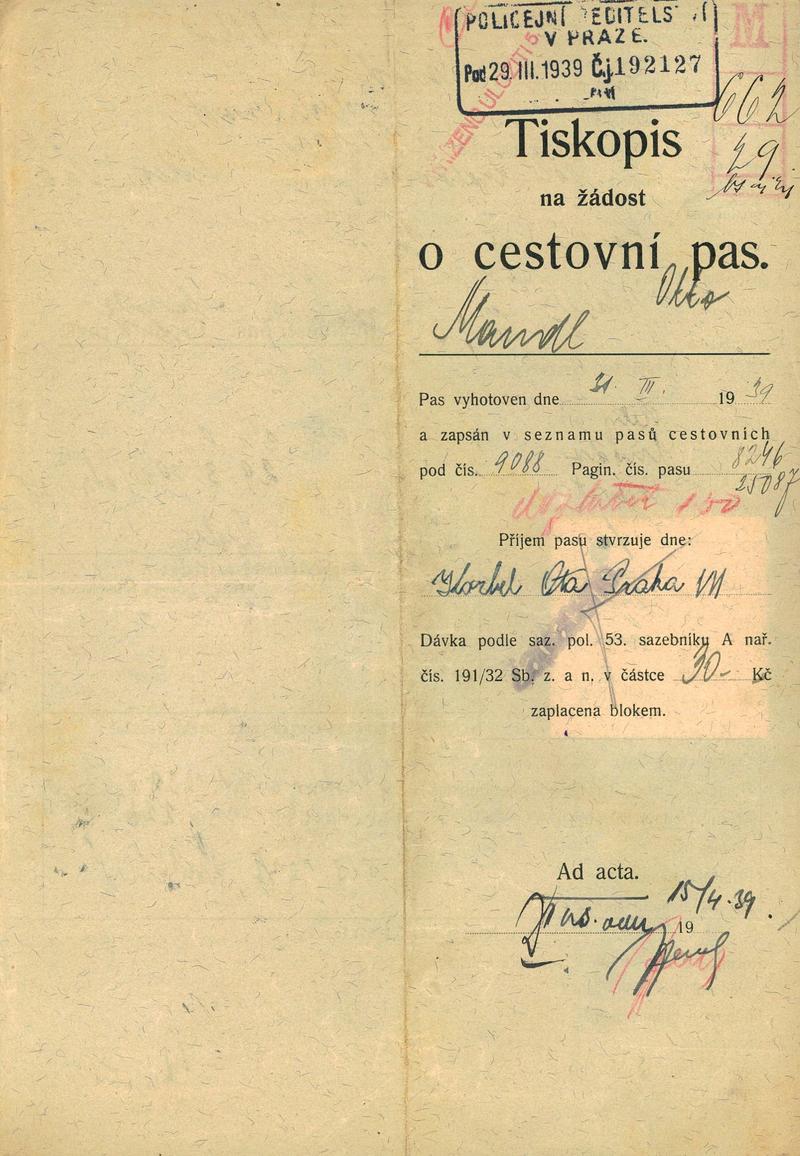 POLICEJNÍ ŘEDITELSTVÍ
V PRAZE.
Pod 29. III. 1939 Čj. 192127
M
662
29
Tiskopis
na žádost
o cestovní pas.
Otto
Mandl
Pas vyhotoven dne 31. III. 1939
a zapsán v seznamu pasů cestovních
pod čís. 9088 Pagin. čís. pasu 8246
25087
doplatit 150
Příjem pasu stvrzuje dne:
Korbel Ota Praha VII
Dávka podle saz. pol. 53. sazebníku A nař.
čís. 191/32 Sb. z. a n. v částce 30- Kč
zaplacena blokem.
Ad acta.
15/4.39.
19